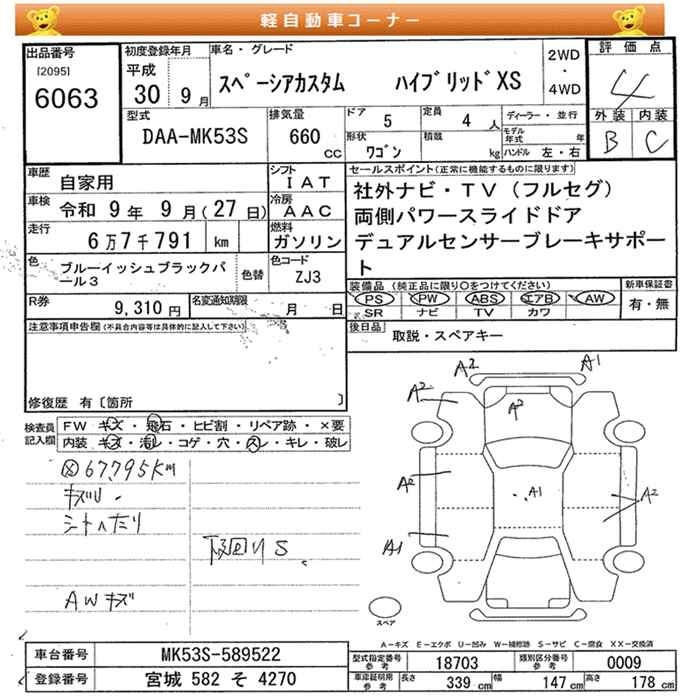 軽自動車コーナー
出品番号 初度登録年月 車名・グレード 2WD・4WD 評価点
[2095]
6063
平成 30 9月 スペーシアカスタム ハイブリッドXS
4
型式 排気量 ドア 5 定員 4 人 ディーラー・並行 外装 内装
DAA-MK53S 660 CC 形状 ワゴン 積載 kg モデル年式 年 B C
ハンドル 左・右
車歴 自家用 シフト IAT セールスポイント(正常に機能するものに限ります)
車検 令和 9年 9月(27日) 冷房 AAC 社外ナビ・TV(フルセグ)
両側パワースライドドア
走行 6万7千791 km 燃料 ガソリン デュアルセンサーブレーキサポー
ト
色 ブルーイッシュブラックパ
ール3 色替 色コード ZJ3
装備品(純正品に限り○をつけてください) 新車保証書
PS PW ABS エアB AW 有・無
SR ナビ TV カワ
R券 9,310 円 名変通知期限 月 日
後日品 取説・スペアキー
注意事項申告欄(不具合内容等は具体的に記入して下さい)
修復歴 有〔箇所 〕
検査員記入欄 FW キズ・飛石・ヒビ割・リペア跡・×要
内装 キズ・汚レ・コゲ・穴・スレ・キレ・破レ
67,795km
キズU
シートヘたり
下廻りS
AWキズ
A2 A1
A2 A2
A2 A1 A2
A1
スペア
A-キズ E-エクボ U-凹み W-補修跡 S-サビ C-腐食 XX-交換済
車台番号 MK53S-589522
型式指定番号参考 18703 類別区分番号参考 0009
登録番号 宮城 582 そ 4270
車庫証明用参考 長さ 339 cm 幅 147 cm 高さ 178 cm